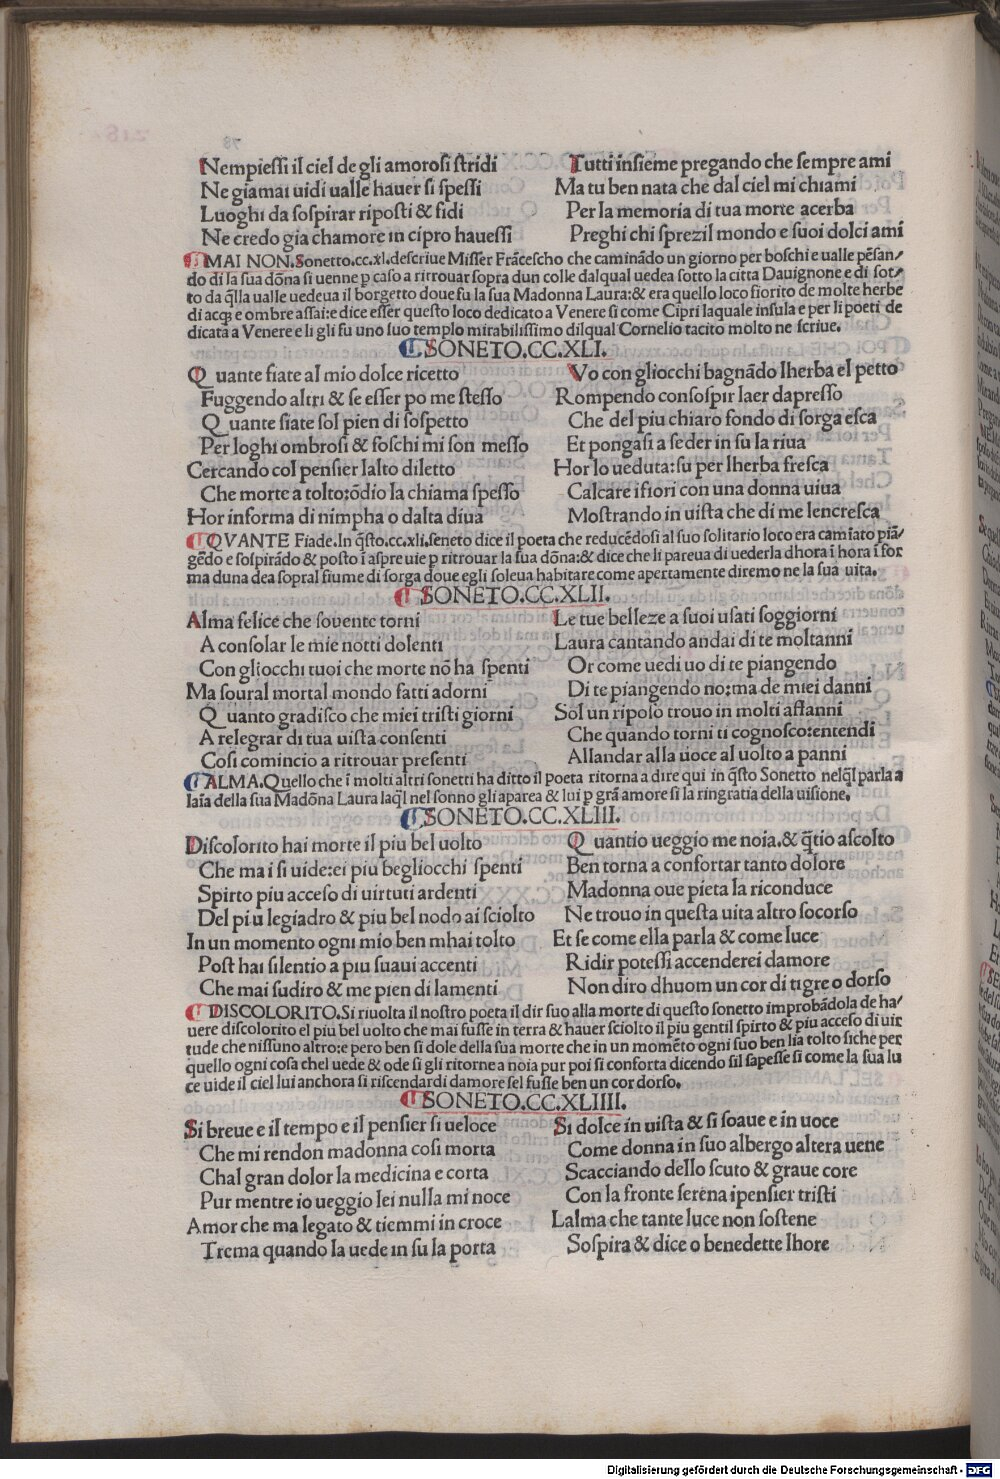 Nempiessi il ciel de gli amorosi stridi
Ne giamai uidi ualle hauer si spessi
Luoghi da sospirar riposti & fidi
Ne credo gia chamore in cipro hauessi
Tutti insieme pregando che sempre ami
Ma tu ben nata che dal ciel mi chiami
Per la memoria di tua morte acerba
Preghi chi sprezil mondo e suoi dolci ami
MAI NON. Sonetto.cc.xl.descriue Misser Frācescho che caminādo un giorno per boschi e ualle pēsan/
do di la sua dōna si uenne p caso a ritrouar sopra dun colle dalqual uedea sotto la citta Dauignone e di sot/
to da q̄lla ualle uedeua il borgetto doue fu la sua Madonna Laura:& era quello loco fiorito de molte herbe
di acque e ombre assai:e dice esser questo loco dedicato a Venere si come Cipri laquale insula e per li poeti de
dicata a Venere e li gli fu uno suo templo mirabilissimo dilqual Cornelio tacito molto ne scriue.
SONETO.CC.XLI.
Quante fiate al mio dolce ricetto
Fuggendo altri & se esser po me stesso
Quante siate sol pien di sospetto
Per loghi ombrosi & foschi mi son messo
Cercando col pensier lalto diletto
Che morte a tolto:ōdio la chiama spesso
Hor informa di nimpha o dalta diua
Vo con gliocchi bagnādo lherba el petto
Rompendo consospir laer dapresso
Che del piu chiaro fondo di sorga esca
Et pongasi a seder in su la riua
Hor lo ueduta:su per lherba fresca
Calcare ifiori con una donna uiua
Mostrando in uista che di me lencresca
QVANTE Fiade.In q̄sto.cc.xli.seneto dice il poeta che reducēdosi al suo solitario loco era camiato piā/
gēdo e sospirādo & posto ī aspre uie p ritrouar la sua dōna:& dice che li pareua di uederla dhora ī hora ī for
ma duna dea sopral fiume di sorga doue egli soleua habitare come apertamente diremo ne la sua uita.
SONETO.CC.XLII.
Alma felice che souente torni
A consolar le mie notti dolenti
Con gliocchi tuoi che morte nō ha spenti
Ma soural mortal mondo fatti adorni
Quanto gradisco che miei tristi giorni
A relegrar di tua uista consenti
Cosi comincio a ritrouar presenti
Le tue belleze a suoi usati soggiorni
Laura cantando andai di te moltanni
Or come uedi uo di te piangendo
Di te piangendo no:ma de miei danni
Sol un riposo trouo in molti affanni
Che quando torni ti cognosco:entendi
Allandar alla uoce al uolto a panni
ALMA.Quello che ī molti altri sonetti ha ditto il poeta ritorna a dire qui in q̄sto Sonetto nelq̄l parla a
laīa della sua Madōna Laura laq̄l nel sonno gli aparea & lui p grā amore si la ringratia della uisione.
SONETO.CC.XLIII.
Discolorito hai morte il piu bel uolto
Che mai si uide:ei piu begliocchi spenti
Spirto piu acceso di uirtuti ardenti
Del piu legiadro & piu bel nodo ai sciolto
In un momento ogni mio ben mhai tolto
Post hai silentio a piu suaui accenti
Che mai sudiro & me pien di lamenti
Quantio ueggio me noia.& q̄tio ascolto
Ben torna a confortar tanto dolore
Madonna oue pieta la riconduce
Ne trouo in questa uita altro socorso
Et se come ella parla & come luce
Ridir potessi accenderei damore
Non diro dhuom un cor di tigre o dorso
DISCOLORITO.Si riuolta il nostro poeta il dir suo alla morte di questo sonetto improbādola de ha/
uere discolorito el piu bel uolto che mai fusse in terra & hauer sciolto il piu gentil spirto & piu acceso di uir
tude che nissuno altro:e pero ben si dole della sua morte che in un momēto ogni suo ben lia tolto siche per
quello ogni cosa chel uede & ode si gli ritorne a noia pur poi si conforta dicendo sil sapesse si come la sua lu
ce uide il ciel lui anchora si riscendardi damore sel fusse ben un cor dorso.
SONETO.CC.XLIIII.
Si breue e il tempo e il pensier si ueloce
Che mi rendon madonna cosi morta
Chal gran dolor la medicina e corta
Pur mentre io ueggio lei nulla mi noce
Amor che ma legato & tiemmi in croce
Trema quando la uede in su la porta
Si dolce in uista & si soaue e in uoce
Come donna in suo albergo altera uene
Scacciando dello scuto & graue core
Con la fronte serena ipensier tristi
Lalma che tante luce non sostene
Sospira & dice o benedette lhore
Digitalisierung gefördert durch die Deutsche Forschungsgemeinschaft - DFG